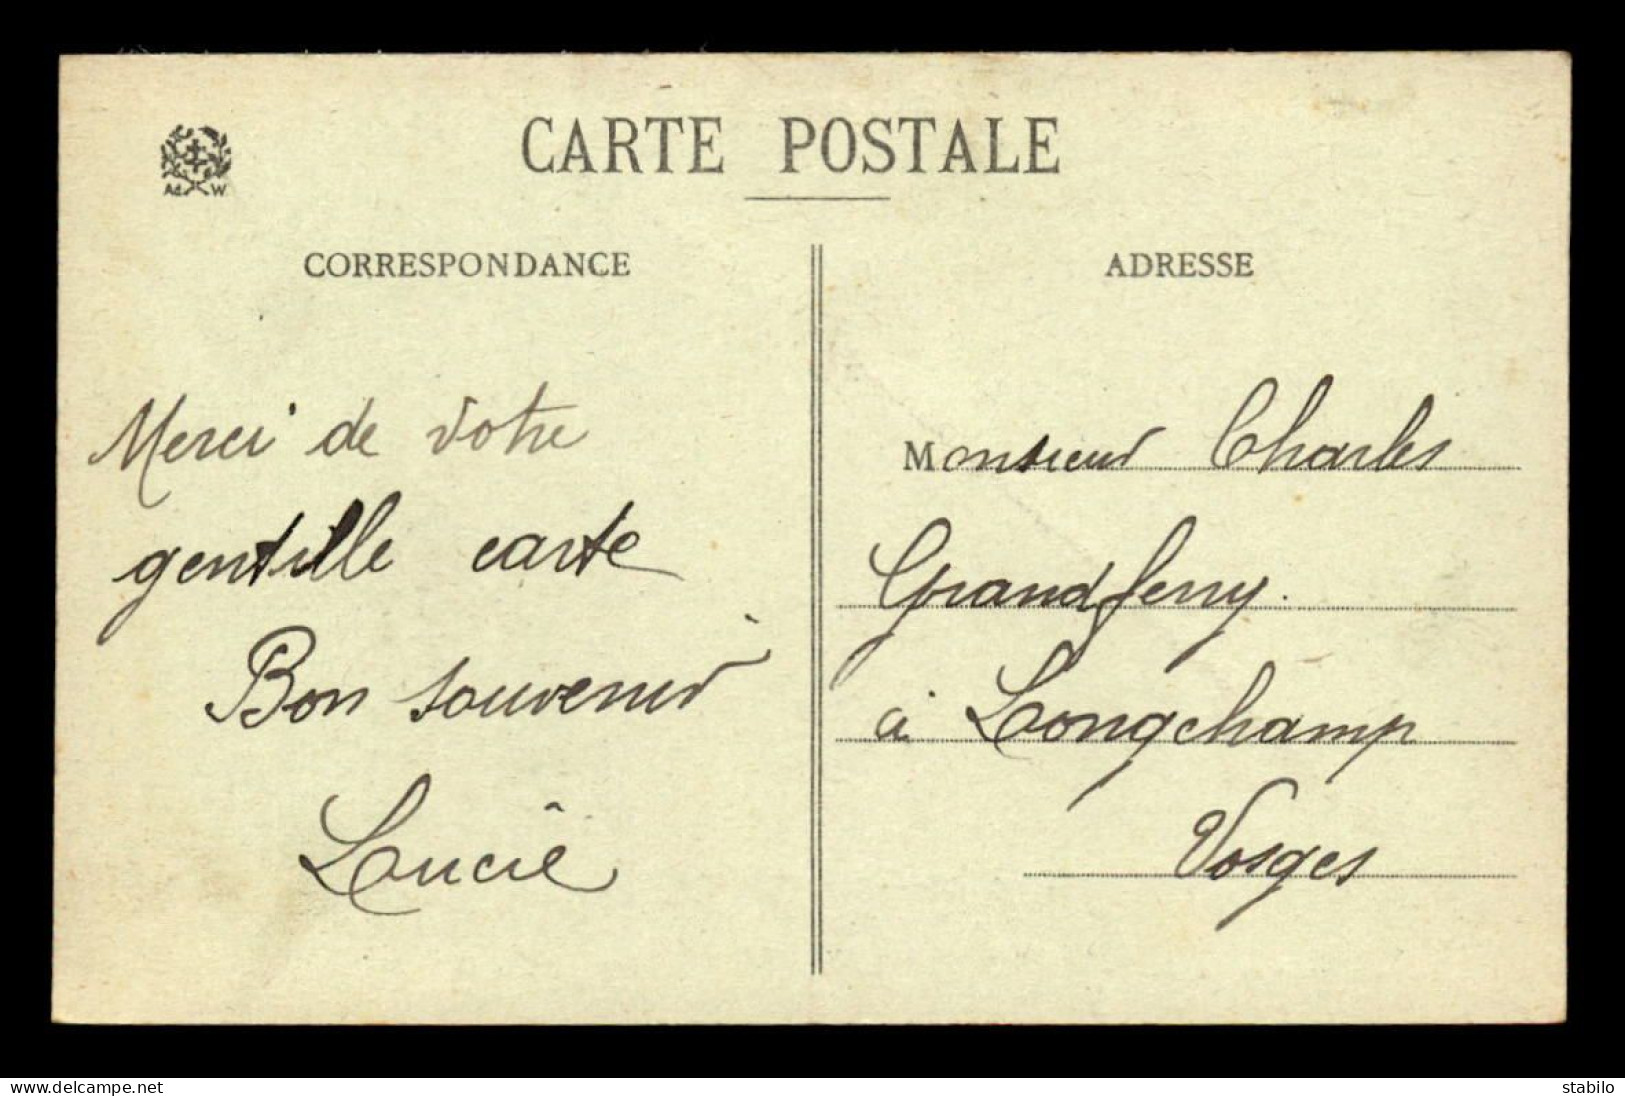 CARTE POSTALE
Ad W
CORRESPONDANCE
Merci de votre
gentille carte
Bon souvenir
Lucie
ADRESSE
Monsieur Charles
Grandferry.
à Longchamp
Vosges
www.delcampe.net
stabilo